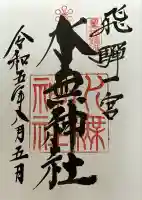 飛騨一宮
水無神社
令和五年八月五日